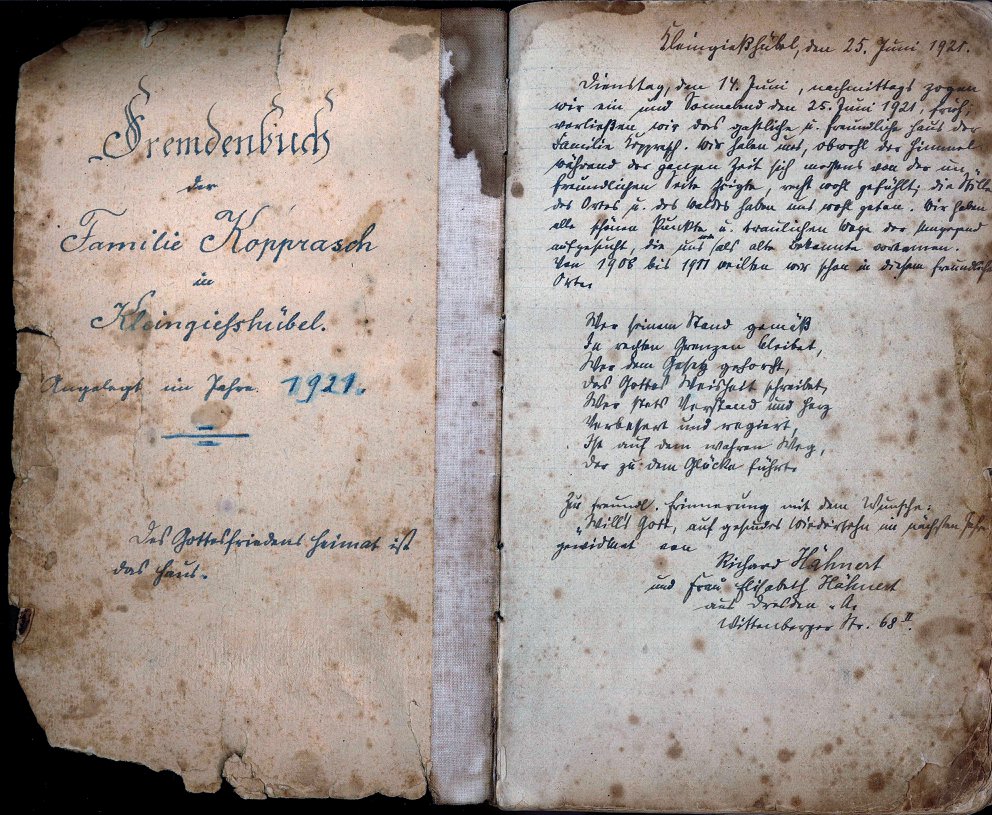 Fremdenbuch
der
Familie Kopprasch
in
Kleingiesshübel.
Angelegt im Jahre 1921.
Des Gottesfriedens Heimat ist
das Haus.
Kleingießhübel, den 25. Juni 1921.
Dienstag, den 14. Juni, nachmittags zogen
wir ein und Sonnabend den 25. Juni 1921, früh,
verließen wir das gastliche u. freundliche Haus der
Familie Kopprasch. Wir haben uns, obwohl der Himmel
während der ganzen Zeit sich meistens von der un
freundlichen Seite zeigte, recht wohl gefühlt; die Stille
des Ortes u. des Waldes haben uns wohl getan. Wir haben
alle schönen Punkte u. traulichen Wege der Umgegend
aufgesucht, die uns als alte Bekannte vorkamen.
Von 1906 bis 1911 weilten wir schon in diesem freundlichen
Orte.
Wer seinem Stand gemäß
In rechten Grenzen bleibet,
Wer dem Gesetz gehorcht,
Das Gottes Weisheit schreibet,
Wer stets Verstand und Herz
Verbessert und regieret,
Ist auf dem wahren Weg,
Der zu dem Glücke führt.
Zur freundl. Erinnerung mit dem Wunsche:
"Will's Gott, auf gesundes Wiedersehn im nächsten Jahre
gewidmet von
Richard Hähnert
und Frau Elisabeth Hähnert
aus Dresden-A.
Wittenberger Str. 68 II.